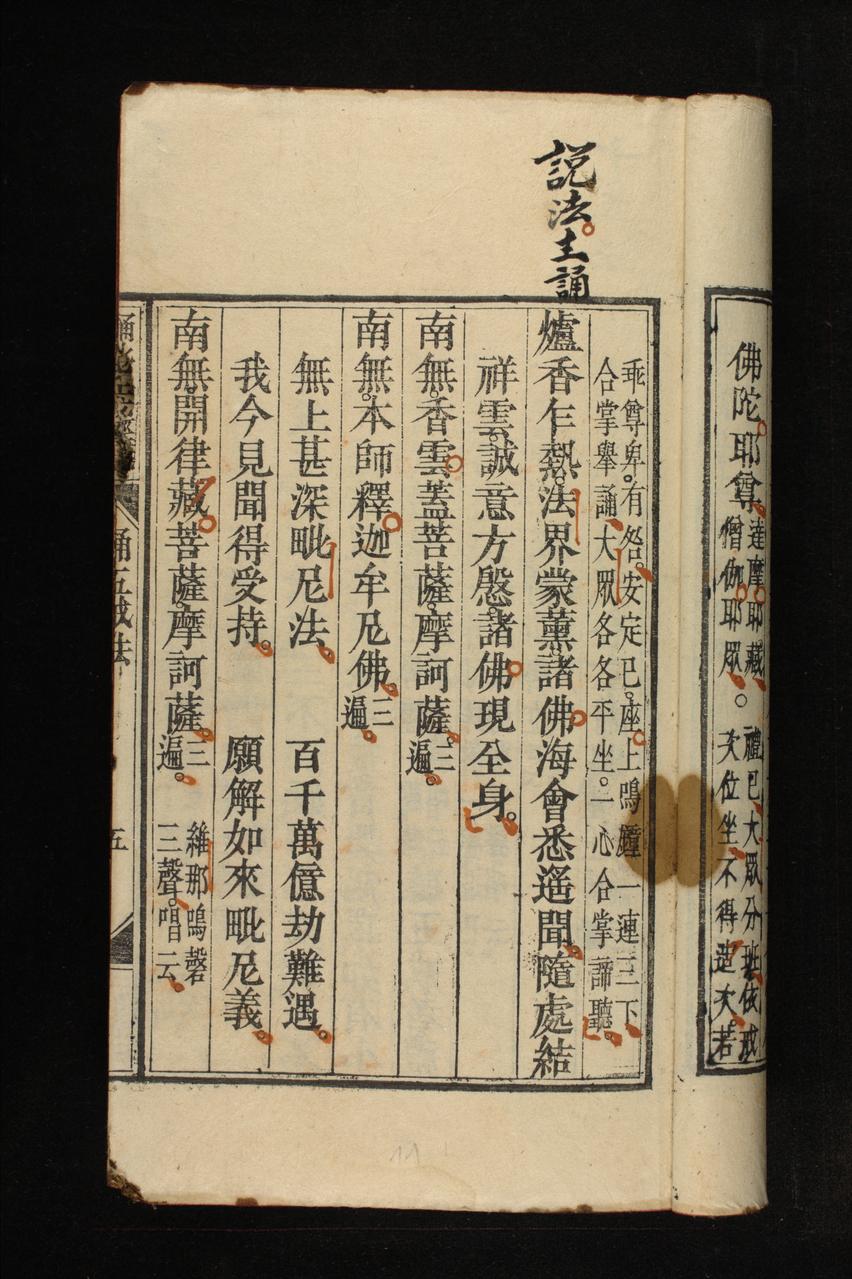 佛陀。耶尊、
達摩。耶藏、
僧伽。耶眾、。
禮已、大眾分班、依戒
次位坐、不得造次、若
說法。主誦
乖尊卑。有咎。安定已。座。上鳴鐘一連三下、
合掌舉誦、大眾各各平坐。一心合掌諦聽。
爐香乍熱。法界蒙薰諸佛海會悉遙聞、隨處結
祥雲。誠意方慇。諸佛現全身。
南無。香雲蓋菩薩。摩訶薩。三遍。
南無。本師釋迦牟尼佛。三遍。
無上甚深毗尼法、 百千萬億劫難遇。
我今見聞得受持。 願解如來毗尼義。
南無。開律藏。菩薩。摩訶薩。三遍。
維那鳴磬
三聲。唱云、
誦五戒法
五